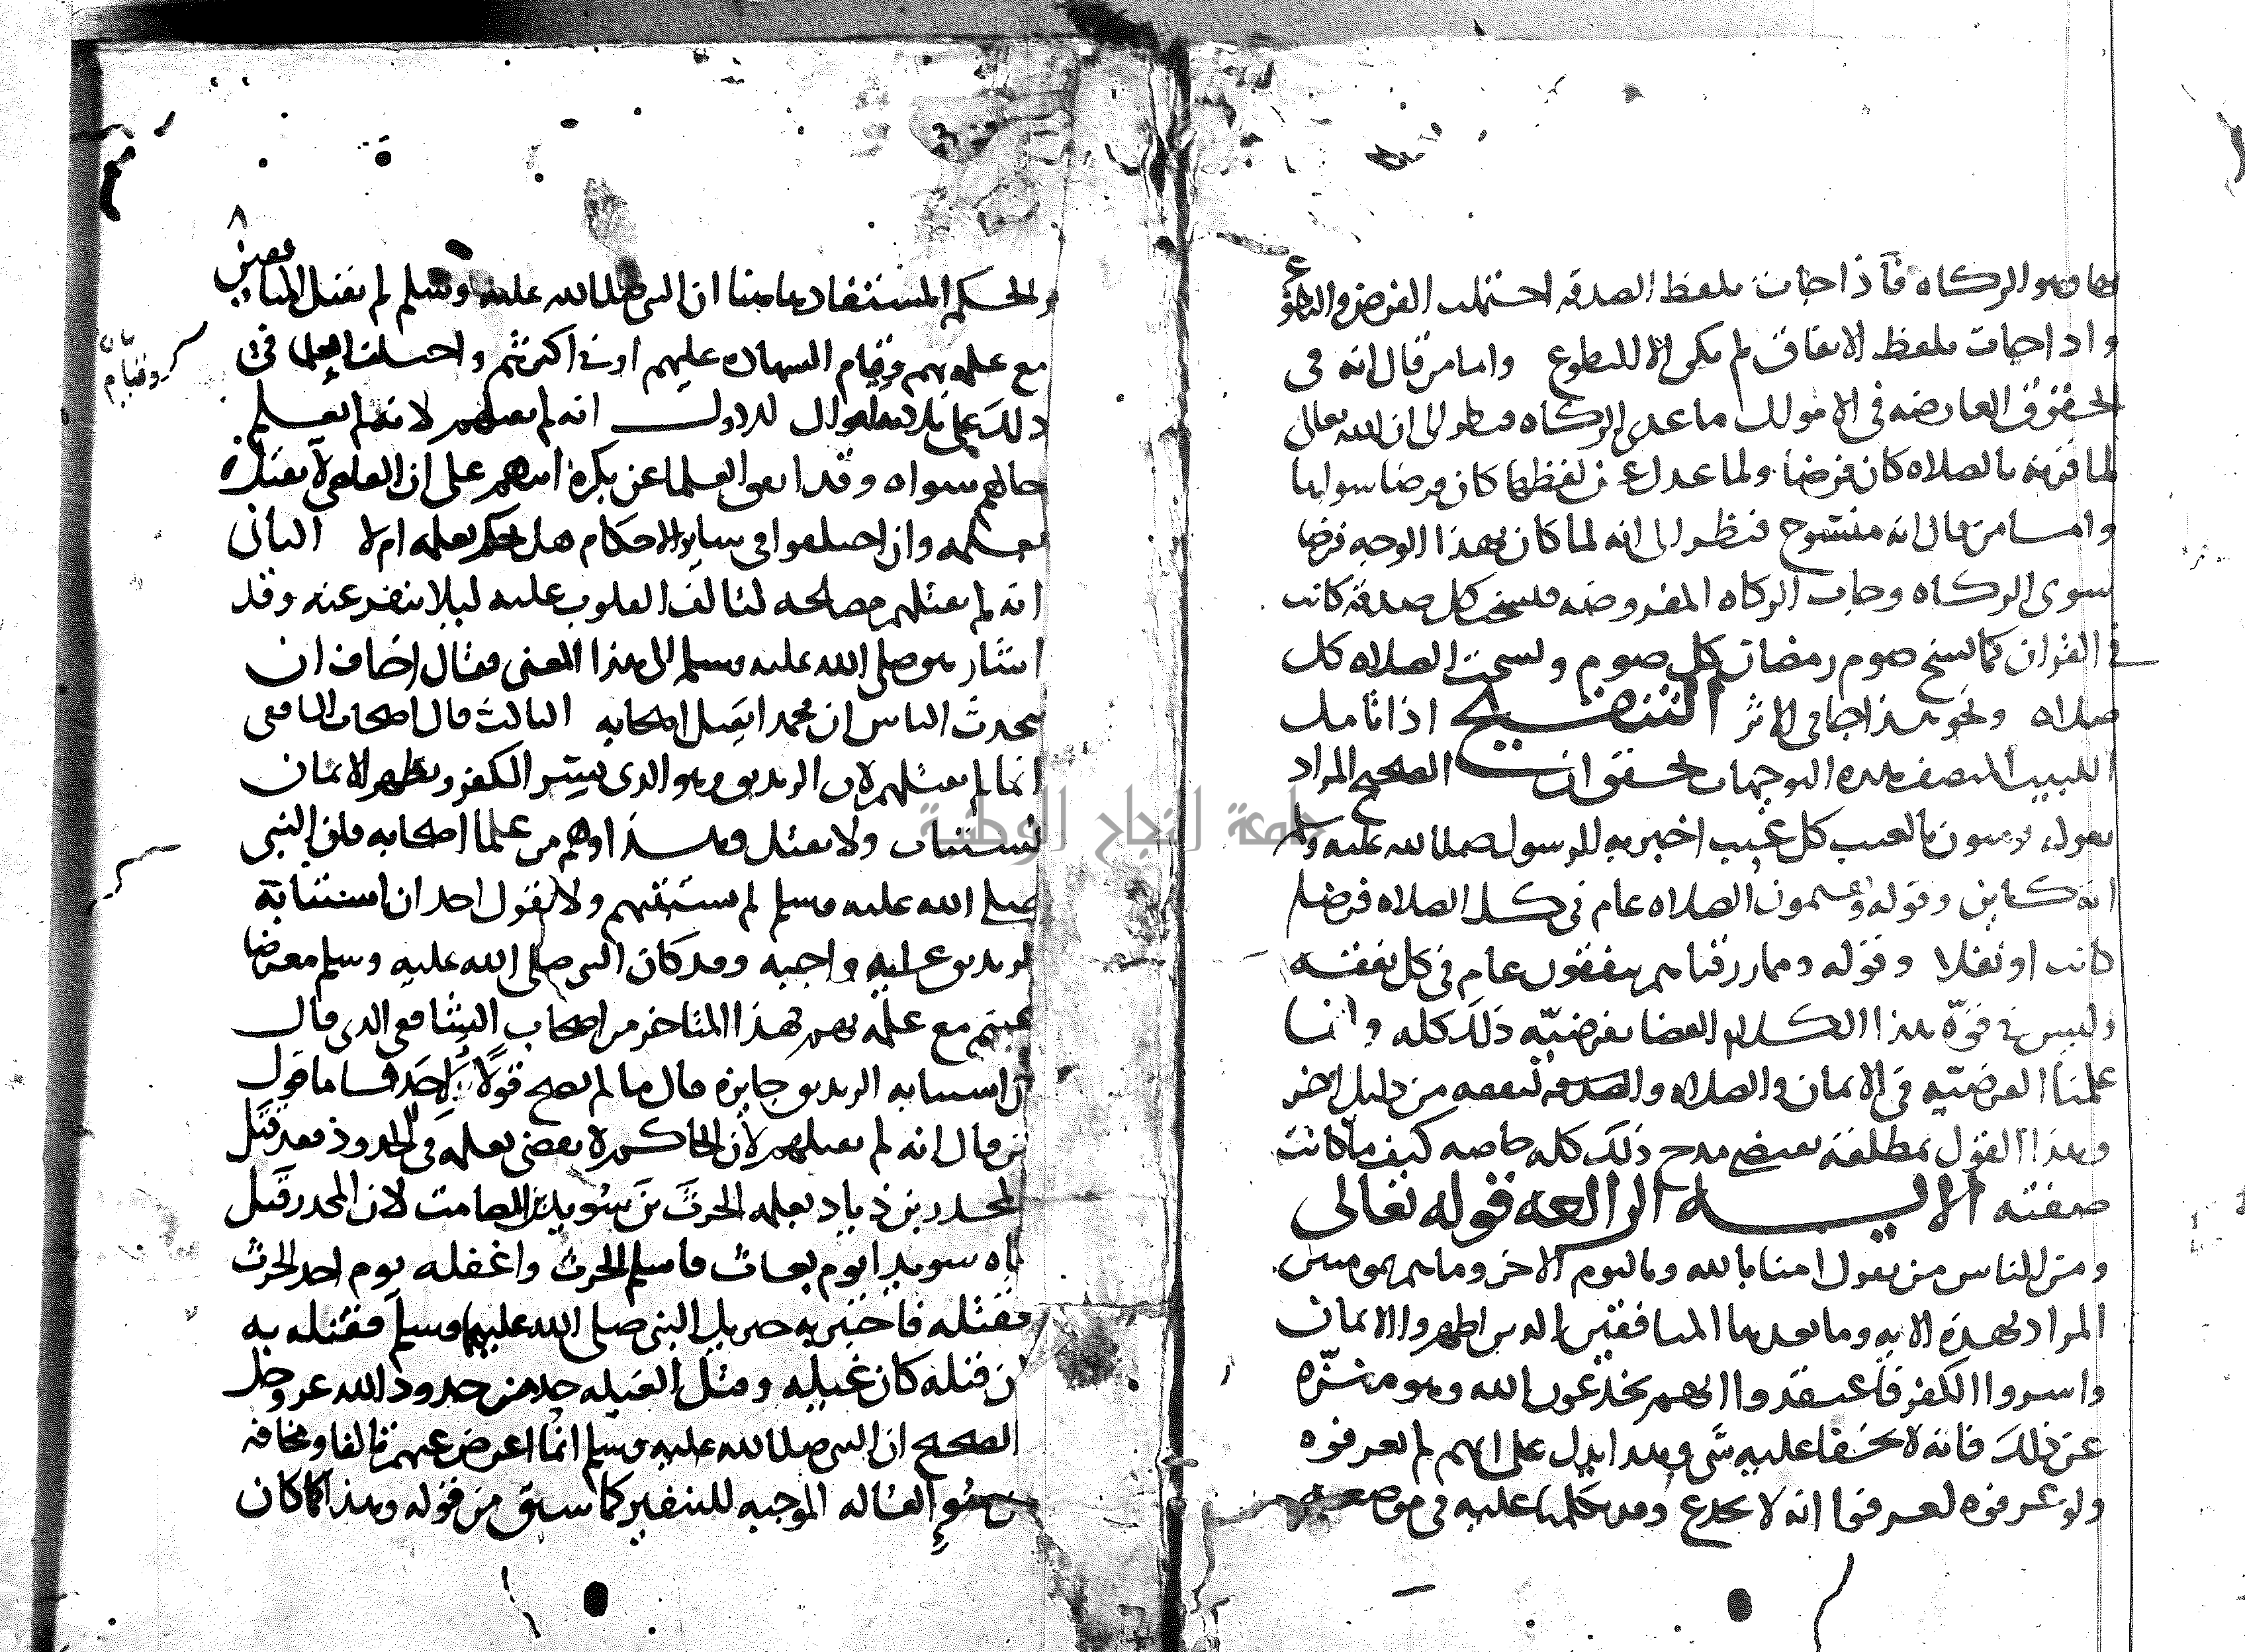 بها وهو الزكاه فاذا جات بلفظ الصدقه احتملت الفرض والتطوع
واذا جات بلفظ الانفاق لم يكن الا للتطوع واما من قال انه في
الحقوق العارضه في الاموال ما عدى الزكاه فنظر الى ان الله تعالى
لما قرنه بالصلاه كان فرضا ولما عدل عن لفظها كان فرضا سواها
وامـا من قال انه منسوخ فنظر الى انه لما كان بهذا الوجه فرضا
سوى الزكاه وجات الزكاه المفروضه فنسخت كل صدقه كانت
في القران كما نسخ صوم رمضان كل صوم ونسخت الصلاه كل
صلاه ونحو هذا جا في الاثر التنقيح اذا تامل
اللبيب المنصف هذه التوجيهات تحقق ان الصحيح المراد
بقوله يومنون بالغيب كل غيب اخبر به الرسول صلى الله عليه وسلم
انه كاين وقوله ويقيمون الصلاه عام في كل الصلاه فرضا
كانت او نفلا وقوله ومما رزقناهم ينفقون عام في كل نفقه
وليس في قوة هذا الكلام القضا بفرضيّه ذلك كله وانما
علمنا الفرضيه في الايمان والصلاه والصدقه النفقه من دليل اخر
وهذا القول بمطلقه يقتضي مدح ذلك كله خاصه كيف ما كانت
صفته الايـه الرابعه قوله تعالى
ومن الناس من يقول امنا بالله وباليوم الاخر وما هم بمومنين
المراد بهذه الايه وما بعدها المنافقين الذين اظهروا الايمان
واسروا الكفر فاعتقدوا انهم يخدعون الله وهو منزّه
عن ذلك فانه لا يخفا عليه شي وهذا يدل على انهم لم يعرفوه
ولو عرفوه لعرفوا انه لا يخدع وقد تكلمنا عليه في موضعه
٨
والحكم المستفاد هاهنا ان النبي صلى الله عليه وسلم لم يقتل المنافقين
مع علمه بهم وقيام الشهاده عليهم او في اكثرهم واختلف العلما في
ذلك على ثلاثه اقوال الاول انه لم يقتلهم لانه لم يعلم
حالهم سواه وقد اتفق العلما عن بكرة ابيهم على ان القاضي لا يقتل
بعلمه وان اختلفوا في ساير الاحكام هل يحكم بعلمه ام لا الثاني
انه لم يقتلهم مصلحه لتالف القلوب عليه ليلا تنفر عنه وقد
اشار هو صلى الله عليه وسلم الى هذا المعنى فقال اخاف ان
يتحدث الناس ان محمدا يقتل اصحابه الثالث قال اصحاب الشافعي
انما لم يقتلهم لان الزنديق وهو الذي يستر الكفر ويظهر الايمان
يستتاب ولا يقتل وهـذا وهم من علما اصحابه فان النبي
صلى الله عليه وسلم لم يستتبهم ولا يقول احد ان استتابة
الزنديق عليه واجبه وقد كان النبي صلى الله عليه وسلم معرضا
عنهم مع علمه بهم فهذا المتاخر من اصحاب الشافعي الذي قال
ان استتابه الزنديق جايزه قال ما لم يصح قولا لاحد فـاما قول
من قال انه لم يقتلهم لان الحاكم لا يقضي بعلمه في الحدود فقد قتل
المجدر بن ذياد بعلمه الحرث بن سويد بن الصامت لان المجدر قتل
اباه سويد ايوم بعاث فاسلم الحرث واغفله يوم احد الحرث
فقتله فاخبر به جبريل النبي صلى الله عليهما وسلم فقتله به
لان قتله كان غيله ومثل الغيله حد من حدود الله عز وجل
الصحيح ان النبي صلى الله عليه وسلم انما اعرض عنهم تالفا ومخافه
من سوء القاله الموجبه للتنفير كما سبق من قوله وهذا كما كان